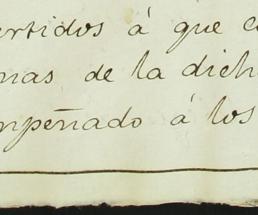 ertidos á que c
nas de la dich
npeñado á los